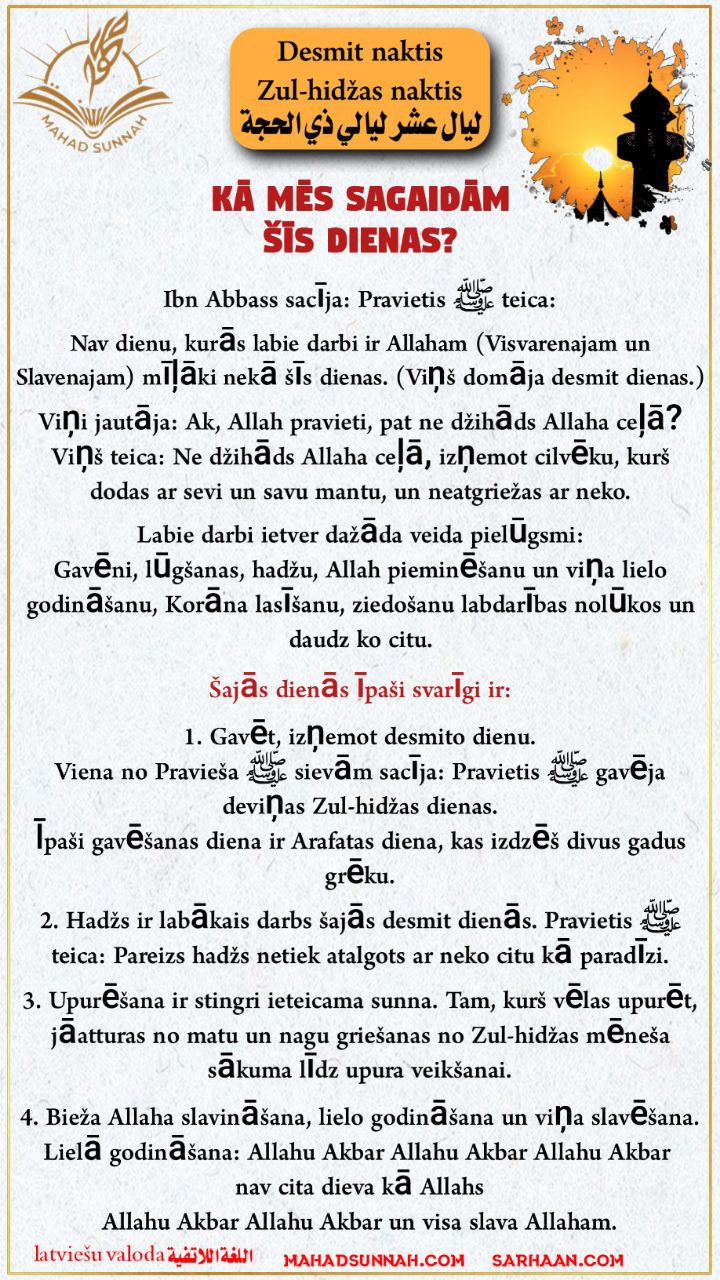 MAHAD SUNNAH
Desmit naktis
Zul-hidžas naktis
ليال عشر ليالي ذي الحجة
KĀ MĒS SAGAIDĀM
ŠĪS DIENAS?
Ibn Abbass sacīja: Pravietis ﷺ teica:
Nav dienu, kurās labie darbi ir Allaham (Visvarenajam un
Slavenajam) mīļāki nekā šīs dienas. (Viņš domāja desmit dienas.)
Viņi jautāja: Ak, Allah pravieti, pat ne džihāds Allaha ceļā?
Viņš teica: Ne džihāds Allaha ceļā, izņemot cilvēku, kurš
dodas ar sevi un savu mantu, un neatgriežas ar neko.
Labie darbi ietver dažāda veida pielūgsmi:
Gavēni, lūgšanas, hadžu, Allah pieminēšanu un viņa lielo
godināšanu, Korāna lasīšanu, ziedošanu labdarības nolūkos un
daudz ko citu.
Šajās dienās īpaši svarīgi ir:
1. Gavēt, izņemot desmito dienu.
Viena no Pravieša ﷺ sievām sacīja: Pravietis ﷺ gavēja
deviņas Zul-hidžas dienas.
Īpaši gavēšanas diena ir Arafatas diena, kas izdzēš divus gadus
grēku.
2. Hadžs ir labākais darbs šajās desmit dienās. Pravietis ﷺ
teica: Pareizs hadžs netiek atalgots ar neko citu kā paradīzi.
3. Upurēšana ir stingri ieteicama sunna. Tam, kurš vēlas upurēt,
jāatturas no matu un nagu griešanas no Zul-hidžas mēneša
sākuma līdz upura veikšanai.
4. Bieža Allaha slavināšana, lielo godināšana un viņa slavēšana.
Lielā godināšana: Allahu Akbar Allahu Akbar Allahu Akbar
nav cita dieva kā Allahs
Allahu Akbar Allahu Akbar un visa slava Allaham.
latviešu valoda اللغة اللاتفية MAHADSUNNAH.COM SARHAAN.COM